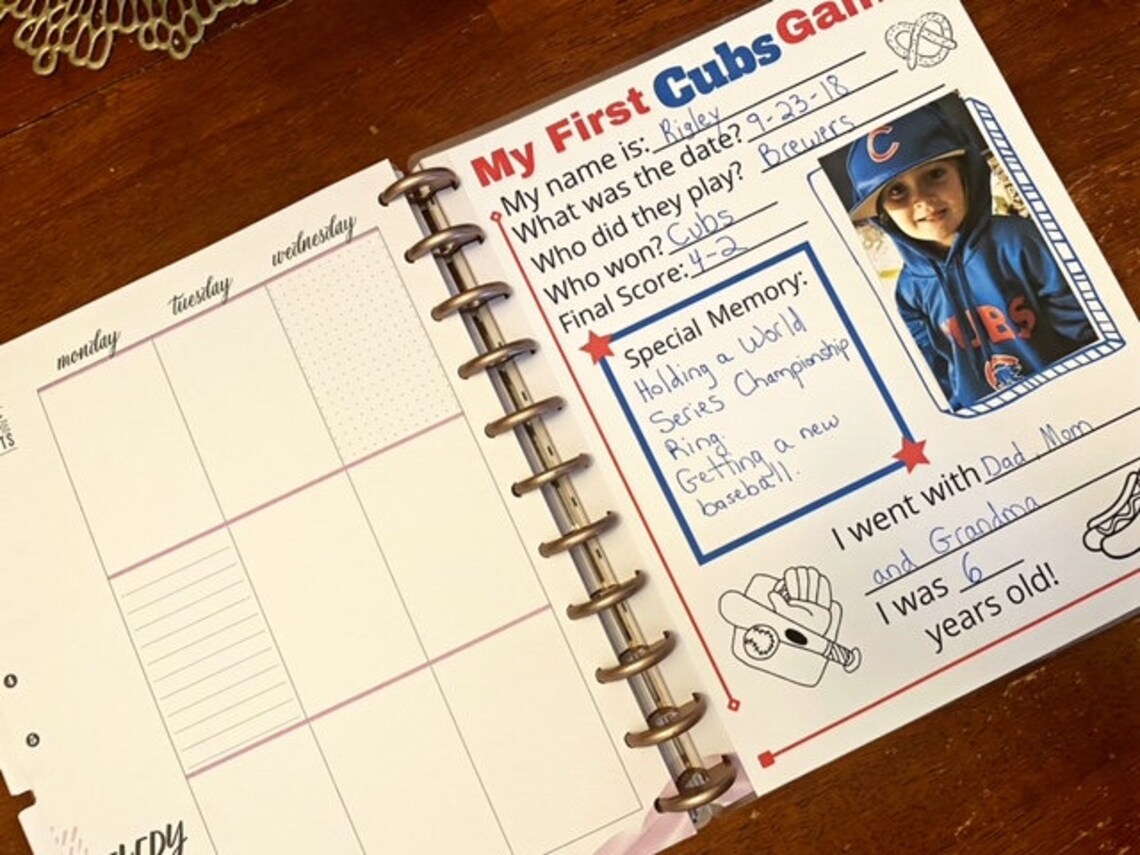 monday
tuesday
wednesday
TS
4
5
My First Cubs Gam
My name is: Rigley
What was the date? 9-23-18
Who did they play? Brewers
Who won? Cubs
Final Score: 4-2
Special Memory:
Holding a World
Series Championship
Ring.
Getting a new
baseball.
C
CUBS
I went with Dad, Mom
and Grandma
I was 6
years old!